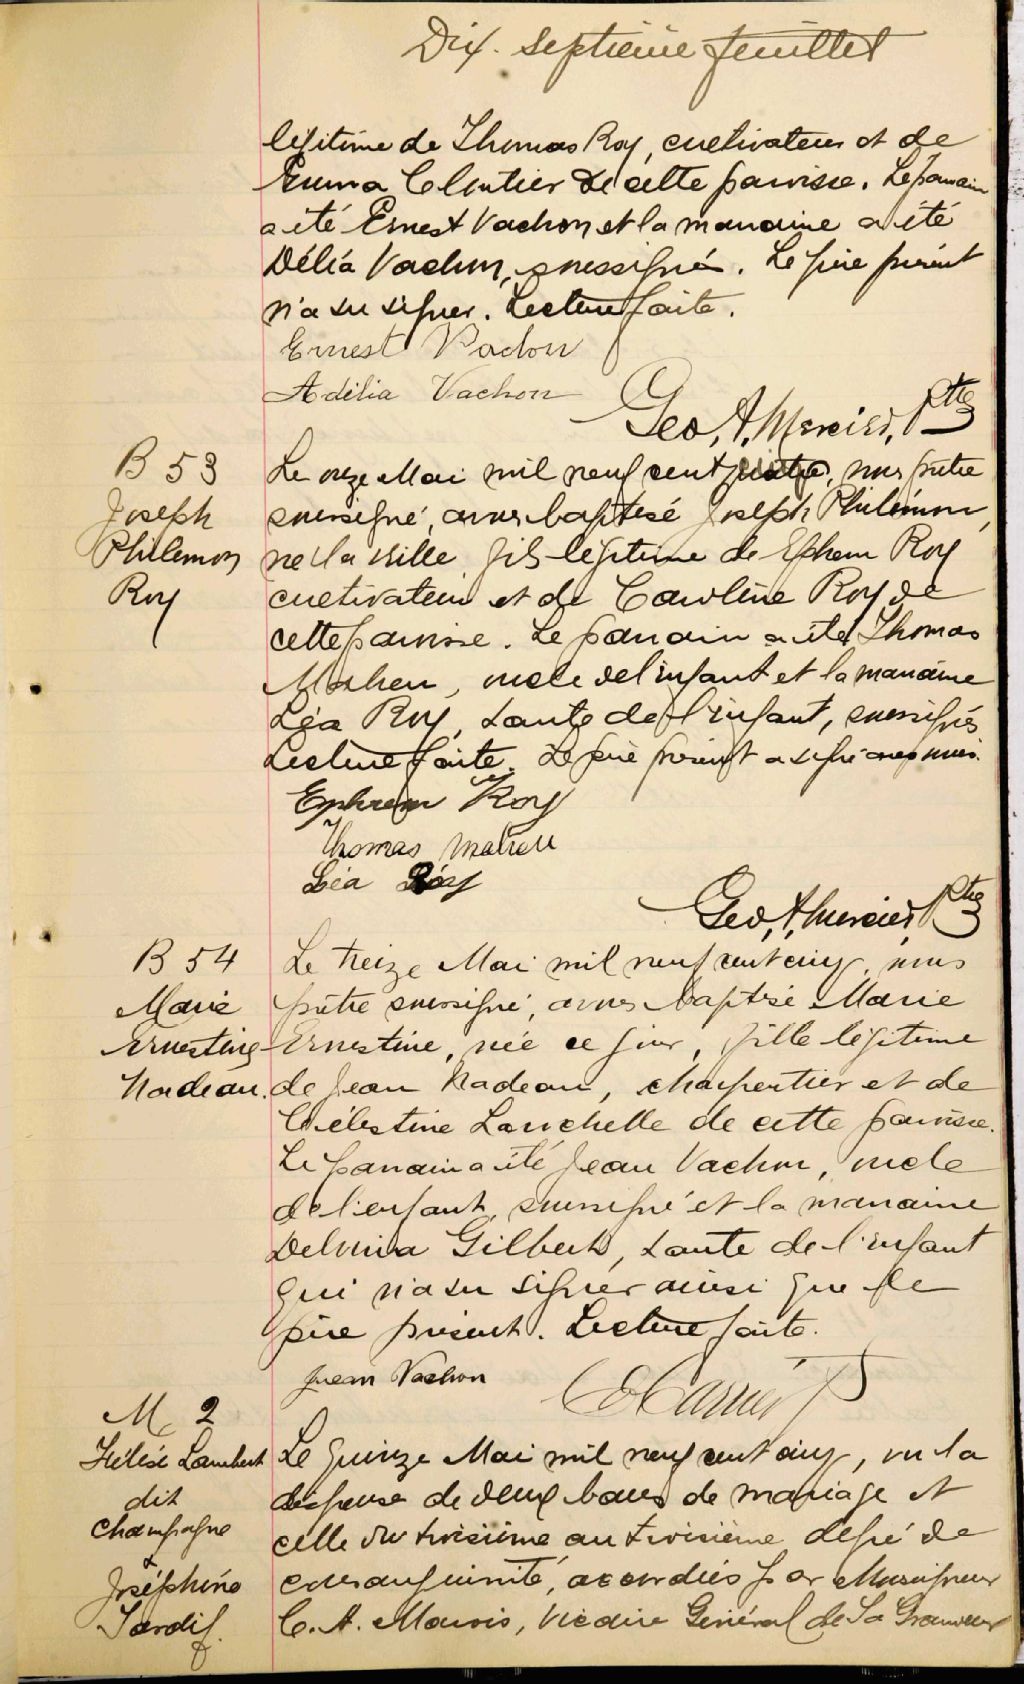 Dix-septième feuillet
légitime de Thomas Roy, cultivateur et de
Emma Cloutier de cette paroisse. Le parrain
a été Ernest Vachon et la marraine a été
Délia Vachon, soussignés. Le père présent
n'a su signer. Lecture faite.
Ernest Vachon
Adélia Vachon
Geo. A. Mercier, Ptre
B 53
Joseph
Philemon
Roy
Le onze Mai mil neuf cent nous prêtre
soussigné, avons baptisé Joseph Philémon,
né la veille, fils légitime de Ephrem Roy
cultivateur et de Caroline Roy de
cette paroisse. Le parrain a été Thomas
Maheu, oncle de l'enfant et la marraine
Léa Roy, tante de l'enfant, soussignés
Lecture faite. Le père présent a signé avec nous.
Ephrem Roy
Thomas Maheu
Léa Roy
Geo. A. Mercier, Ptre
B 54
Marie
Ernestine
Nadeau.
Le treize Mai mil neuf cent cinq, nous
prêtre soussigné, avons baptisé Marie
Ernestine, née ce jour, fille légitime
de Jean Nadeau, charpentier et de
Célestine Larochelle de cette paroisse.
Le parrain a été Jean Vachon, oncle
de l'enfant, soussigné et la marraine
Delvina Gilbert, tante de l'enfant
qui n'a su signer ainsi que le
père présent. Lecture faite.
Jean Vachon
M 2
Lambert
dit
Champagne
&
Joséphine
Tardif
Le quinze Mai mil neuf cent cinq, vu la
dispense de deux bans de mariage et
celle du troisième au troisième degré de
consanguinité, accordées par Monseigneur
C. A. Marois, Vicaire Général de Sa Grandeur